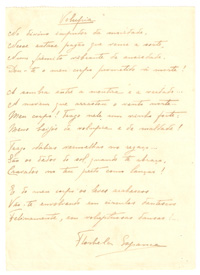 Volupia
No divino impudor da mocidade,
Nesse extase pagão que vence a sorte,
Num fremito vibrante de ansiedade,
Dou-te o meu corpo prometido à morte!
A sombra entre a mentira e a verdade...
A nuvem que arrastou o vento norte...
Meu corpo! Trago nele um vinho forte:
Meus beijos de volupia e de maldade!
Trago dalias vermelhas no regaço...
São os dedos do sol quando te abraço,
Cravados no teu peito como lanças!
E do meu corpo os leves arabescos
Vão-te envolvendo em circulos dantescos
Felinamente, em voluptuosas danças...
Florbela Espanca